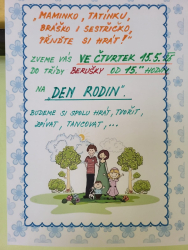 „MAMINKO, TATÍNKU,
BRÁŠKO I SESTŘIČKO,
PŘIJĎTE SI HRÁT!"
ZVEME VÁS VE ČTVRTEK 15.5.
DO TŘÍDY BERUŠKY OD 15.
NA „DEN RODIN".
BUDEME SI SPOLU HRÁT, TVOŘIT,
ZPÍVAT, TANCOVAT,...